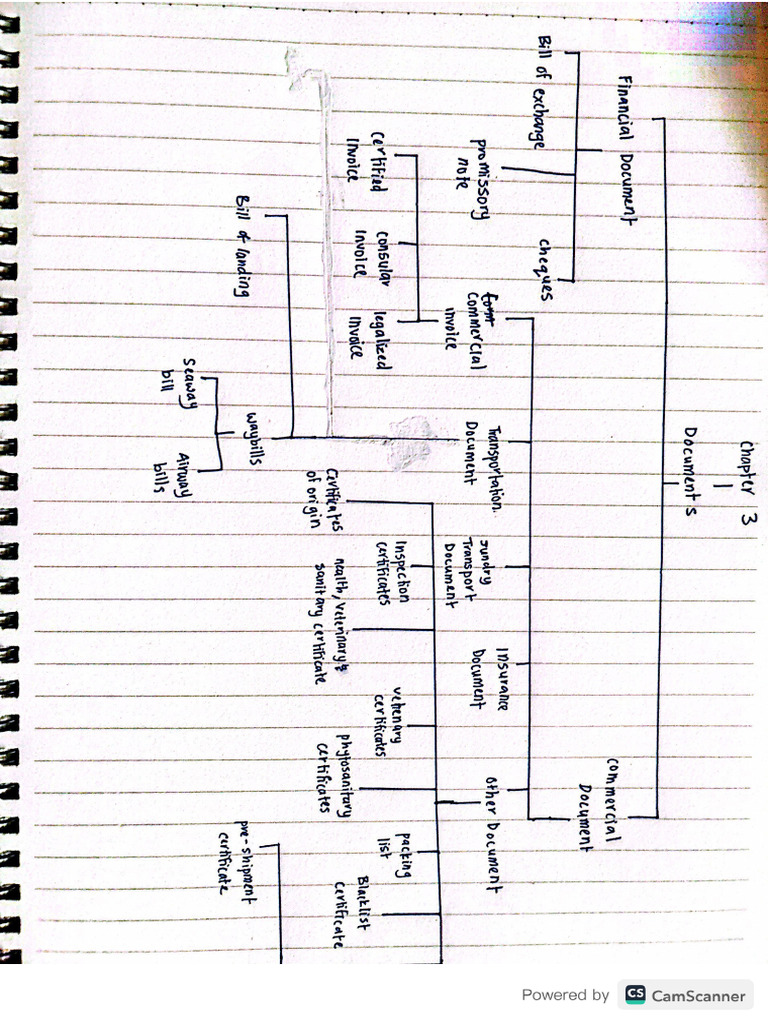 Chapter 3
Documents
Financial Document
Bill of exchange
promissory
note
cheques
commercial
Document
Commercial
invoice
certified
Invoice
consular
Invoice
legalized
Invoice
Transportation
Document
Bill of landing
waybills
Seaway
bill
Airway
bills
sundry
Transport
Document
Insurance
Document
other Document
Certificates
of origin
Inspection
certificates
health, veterinary &
sanitary certificate
vetienary
certificates
phytosanitary
certificates
packing
list
Blacklist
certificate
pre-shipment
certificate
Powered by CS CamScanner